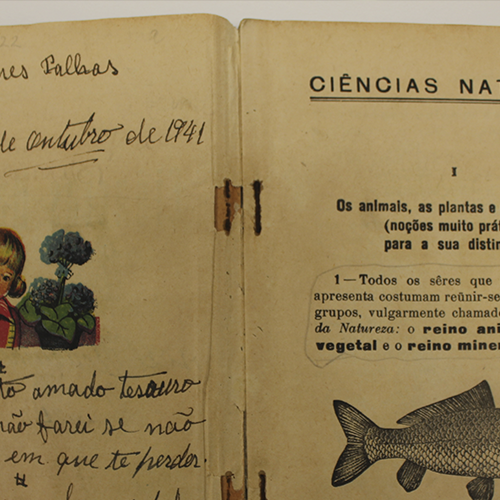 Palhas
de outubro de 1941
amado tesouro
não farei se não
em que te perder.
CIÊNCIAS NAT
I
Os animais, as plantas e
(noções muito prát
para a sua distin
1—Todos os sêres que
apresenta costumam reünir-se
grupos, vulgarmente chamado
da Natureza: o reino ani
vegetal e o reino miner